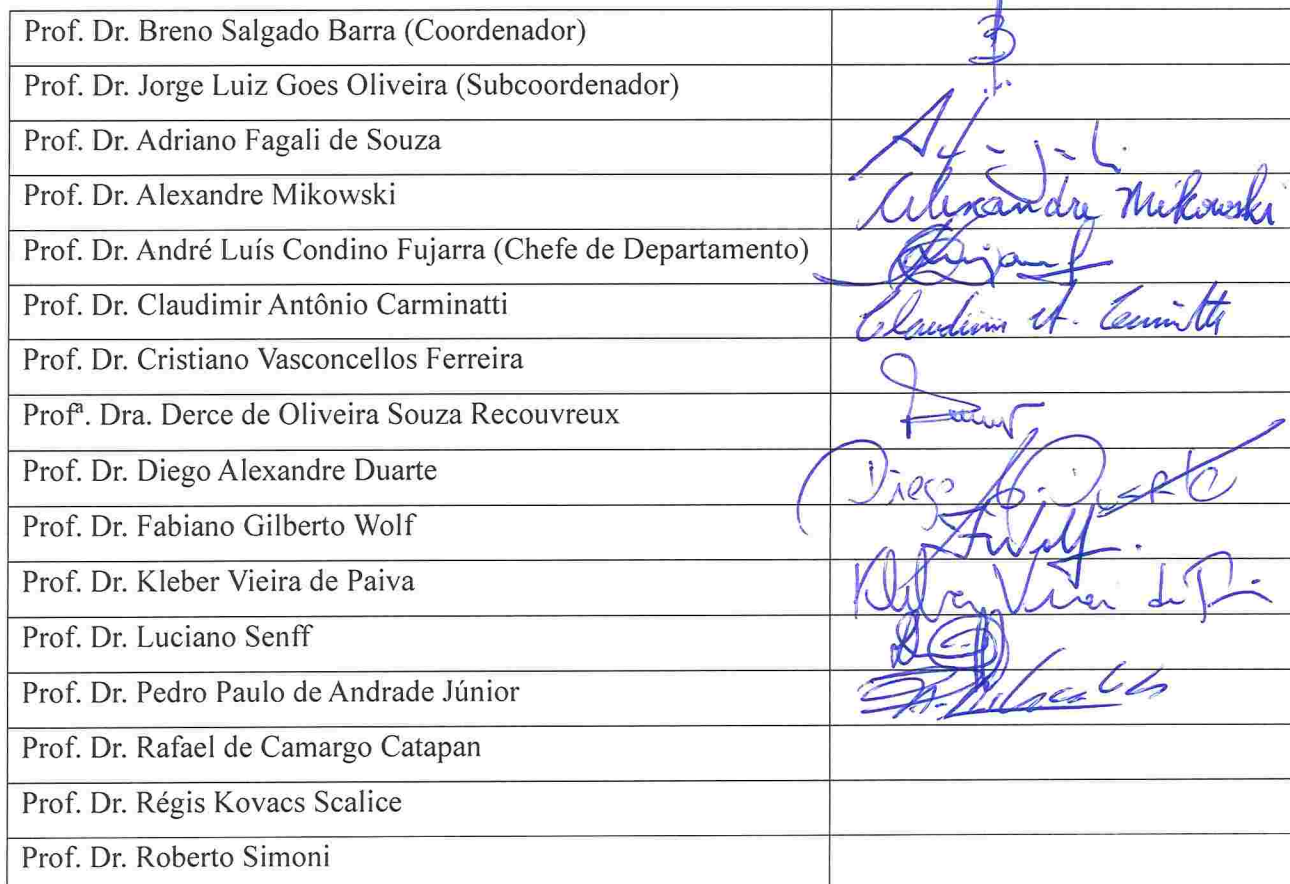 Prof. Dr. Breno Salgado Barra (Coordenador)
Prof. Dr. Jorge Luiz Goes Oliveira (Subcoordenador)
Prof. Dr. Adriano Fagali de Souza
Prof. Dr. Alexandre Mikowski Alexandre Mikowski
Prof. Dr. André Luís Condino Fujarra (Chefe de Departamento)
Prof. Dr. Claudimir Antônio Carminatti
Prof. Dr. Cristiano Vasconcellos Ferreira
Profª. Dra. Derce de Oliveira Souza Recouvreux
Prof. Dr. Diego Alexandre Duarte Diego A. Duarte
Prof. Dr. Fabiano Gilberto Wolf
Prof. Dr. Kleber Vieira de Paiva
Prof. Dr. Luciano Senff
Prof. Dr. Pedro Paulo de Andrade Júnior
Prof. Dr. Rafael de Camargo Catapan
Prof. Dr. Régis Kovacs Scalice
Prof. Dr. Roberto Simoni